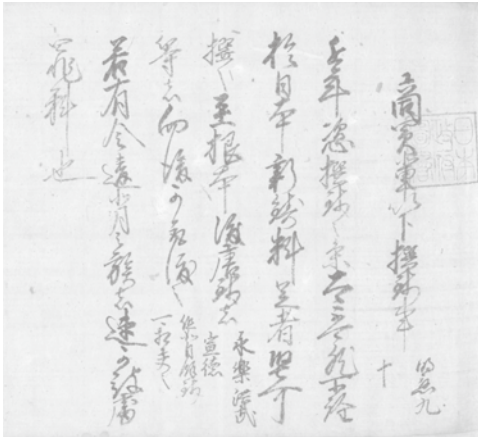 商買輩以下撰銭事 明応九
十
近年恣撰銭之条太不可然所詮
於日本新鋳料足者堅可
撰之至根本渡唐銭者 永楽 洪武 宣徳
等者向後可取渡之
若有令違背之族者速可被處
罪科也
日本